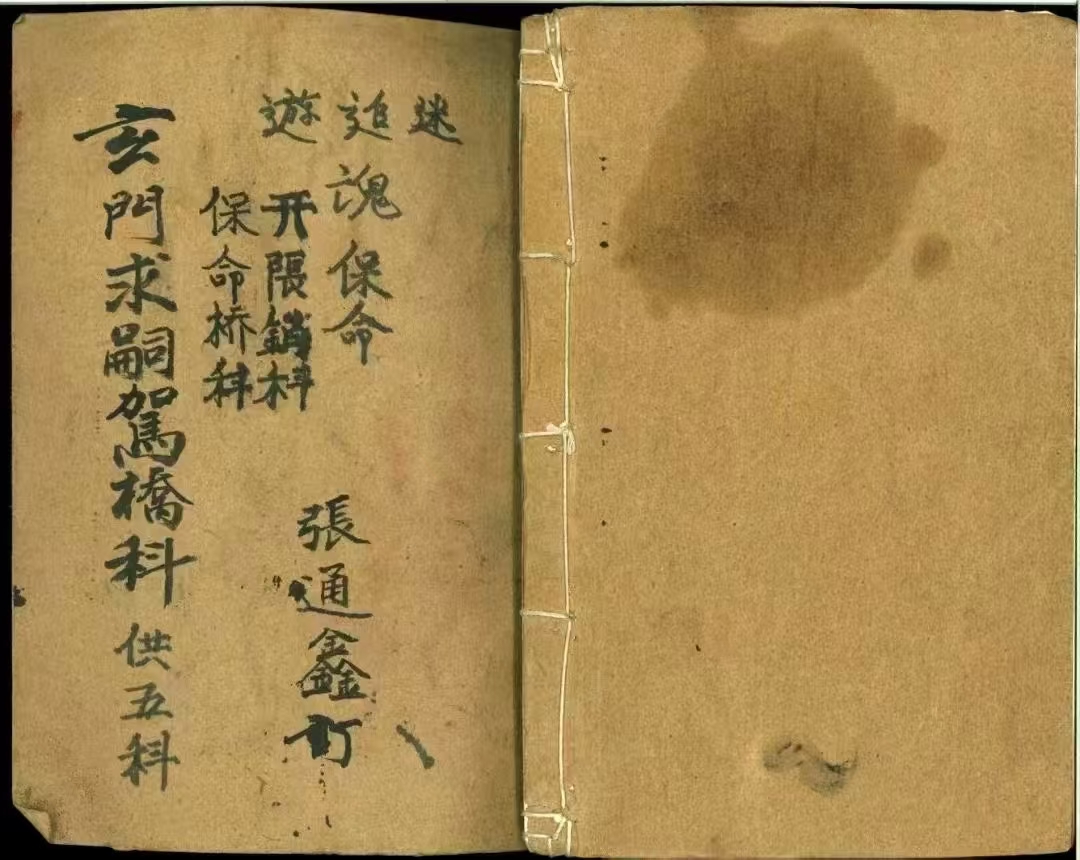 迷
追魂保命
遊
开張銷科
保命桥科
玄門求嗣駕橋科 供五科
張通鑫訂